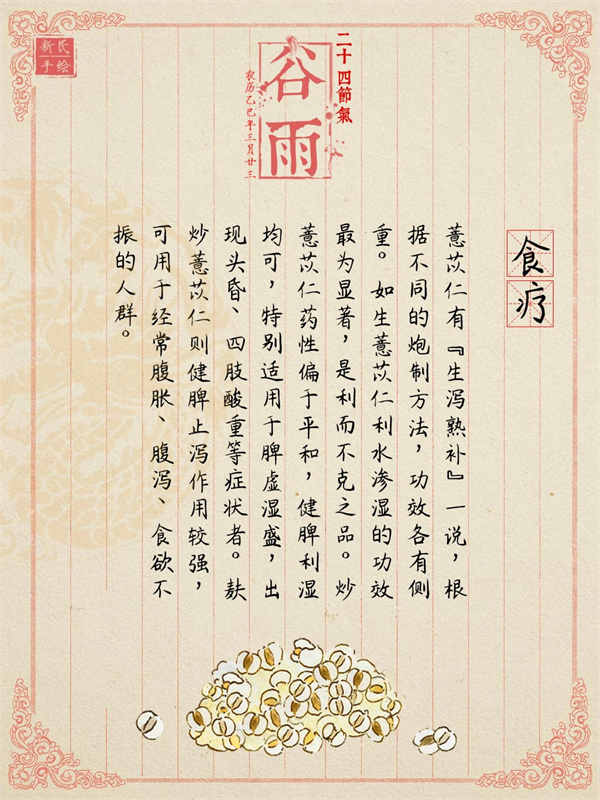 新民
手绘
二十四節氣
谷雨
农历乙巳年三月廿三
食疗
薏苡仁有『生泻熟补』一说，根
据不同的炮制方法，功效各有侧
重。如生薏苡仁利水渗湿的功效
最为显著，是利而不克之品。炒
薏苡仁药性偏于平和，健脾利湿
均可，特别适用于脾虚湿盛，出
现头昏、四肢酸重等症状者。麸
炒薏苡仁则健脾止泻作用较强，
可用于经常腹胀、腹泻、食欲不
振的人群。